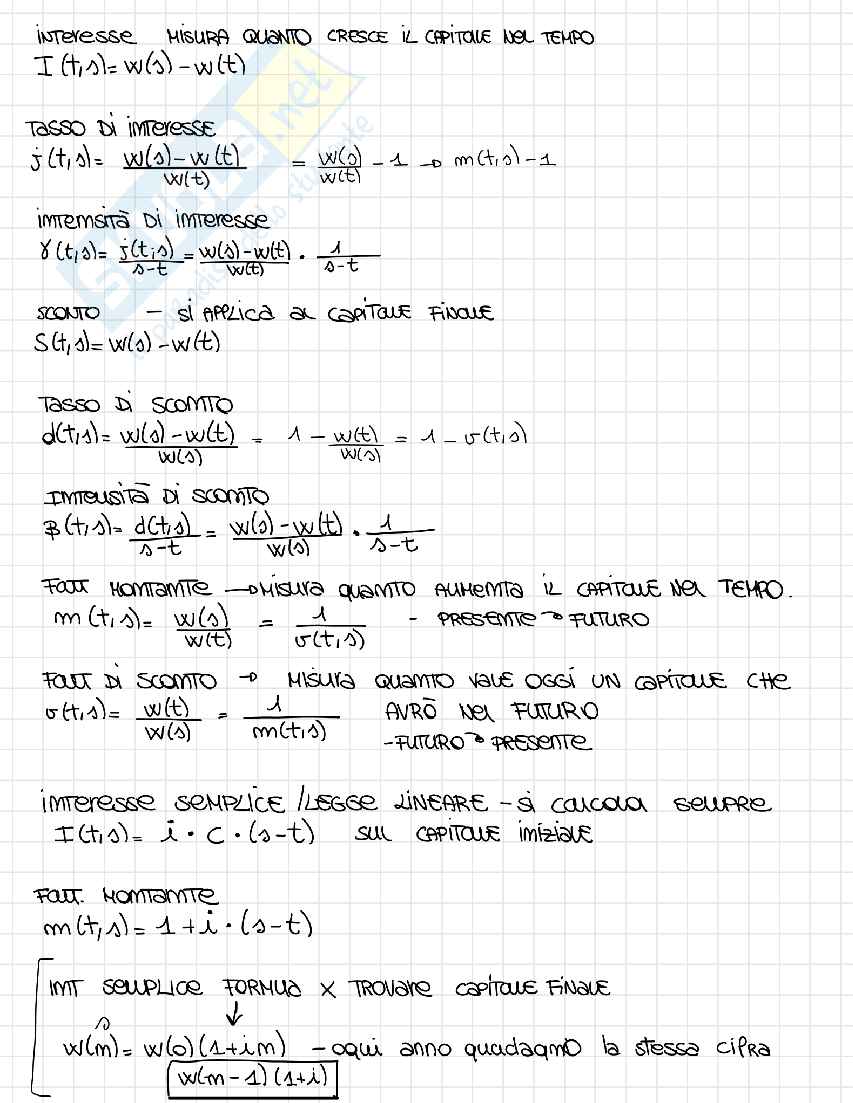 interesse MISURA QUANTO CRESCE IL CAPITALE NEL TEMPO
I(t,s)= w(s) - w(t)
TASSO DI INTERESSE
j(t,s)= (w(s) - w(t))/w(t) = w(s)/w(t) - 1 → m(t,s) - 1
INTENSITÀ DI INTERESSE
γ(t,s)= j(t,s)/(s-t) = (w(s) - w(t))/w(t) · 1/(s-t)
SCONTO - SI APPLICA AL CAPITALE FINALE
S(t,s)= w(s) - w(t)
TASSO DI SCONTO
d(t,s)= (w(s) - w(t))/w(s) = 1 - w(t)/w(s) = 1 - v(t,s)
INTENSITÀ DI SCONTO
β(t,s)= d(t,s)/(s-t) = (w(s) - w(t))/w(s) · 1/(s-t)
FATT MONTANTE → MISURA QUANTO AUMENTA IL CAPITALE NEL TEMPO.
m(t,s)= w(s)/w(t) = 1/v(t,s) - PRESENTE → FUTURO
FATT DI SCONTO → MISURA QUANTO VALE OGGI UN CAPITALE CHE
v(t,s)= w(t)/w(s) = 1/m(t,s) AVRÒ NEL FUTURO
- FUTURO → PRESENTE
INTERESSE SEMPLICE / LEGGE LINEARE - SI CALCOLA SEMPRE
I(t,s)= i · C · (s-t) SUL CAPITALE INIZIALE
FATT. MONTANTE
m(t,s)= 1 + i · (s-t)
INT SEMPLICE FORMULA X TROVARE CAPITALE FINALE
s ↓
w(n)= w(0)(1+in) - ogni anno guadagno la stessa cifra
w(n-1)(1+i)
SKUOLA.net
il paradiso dello studente